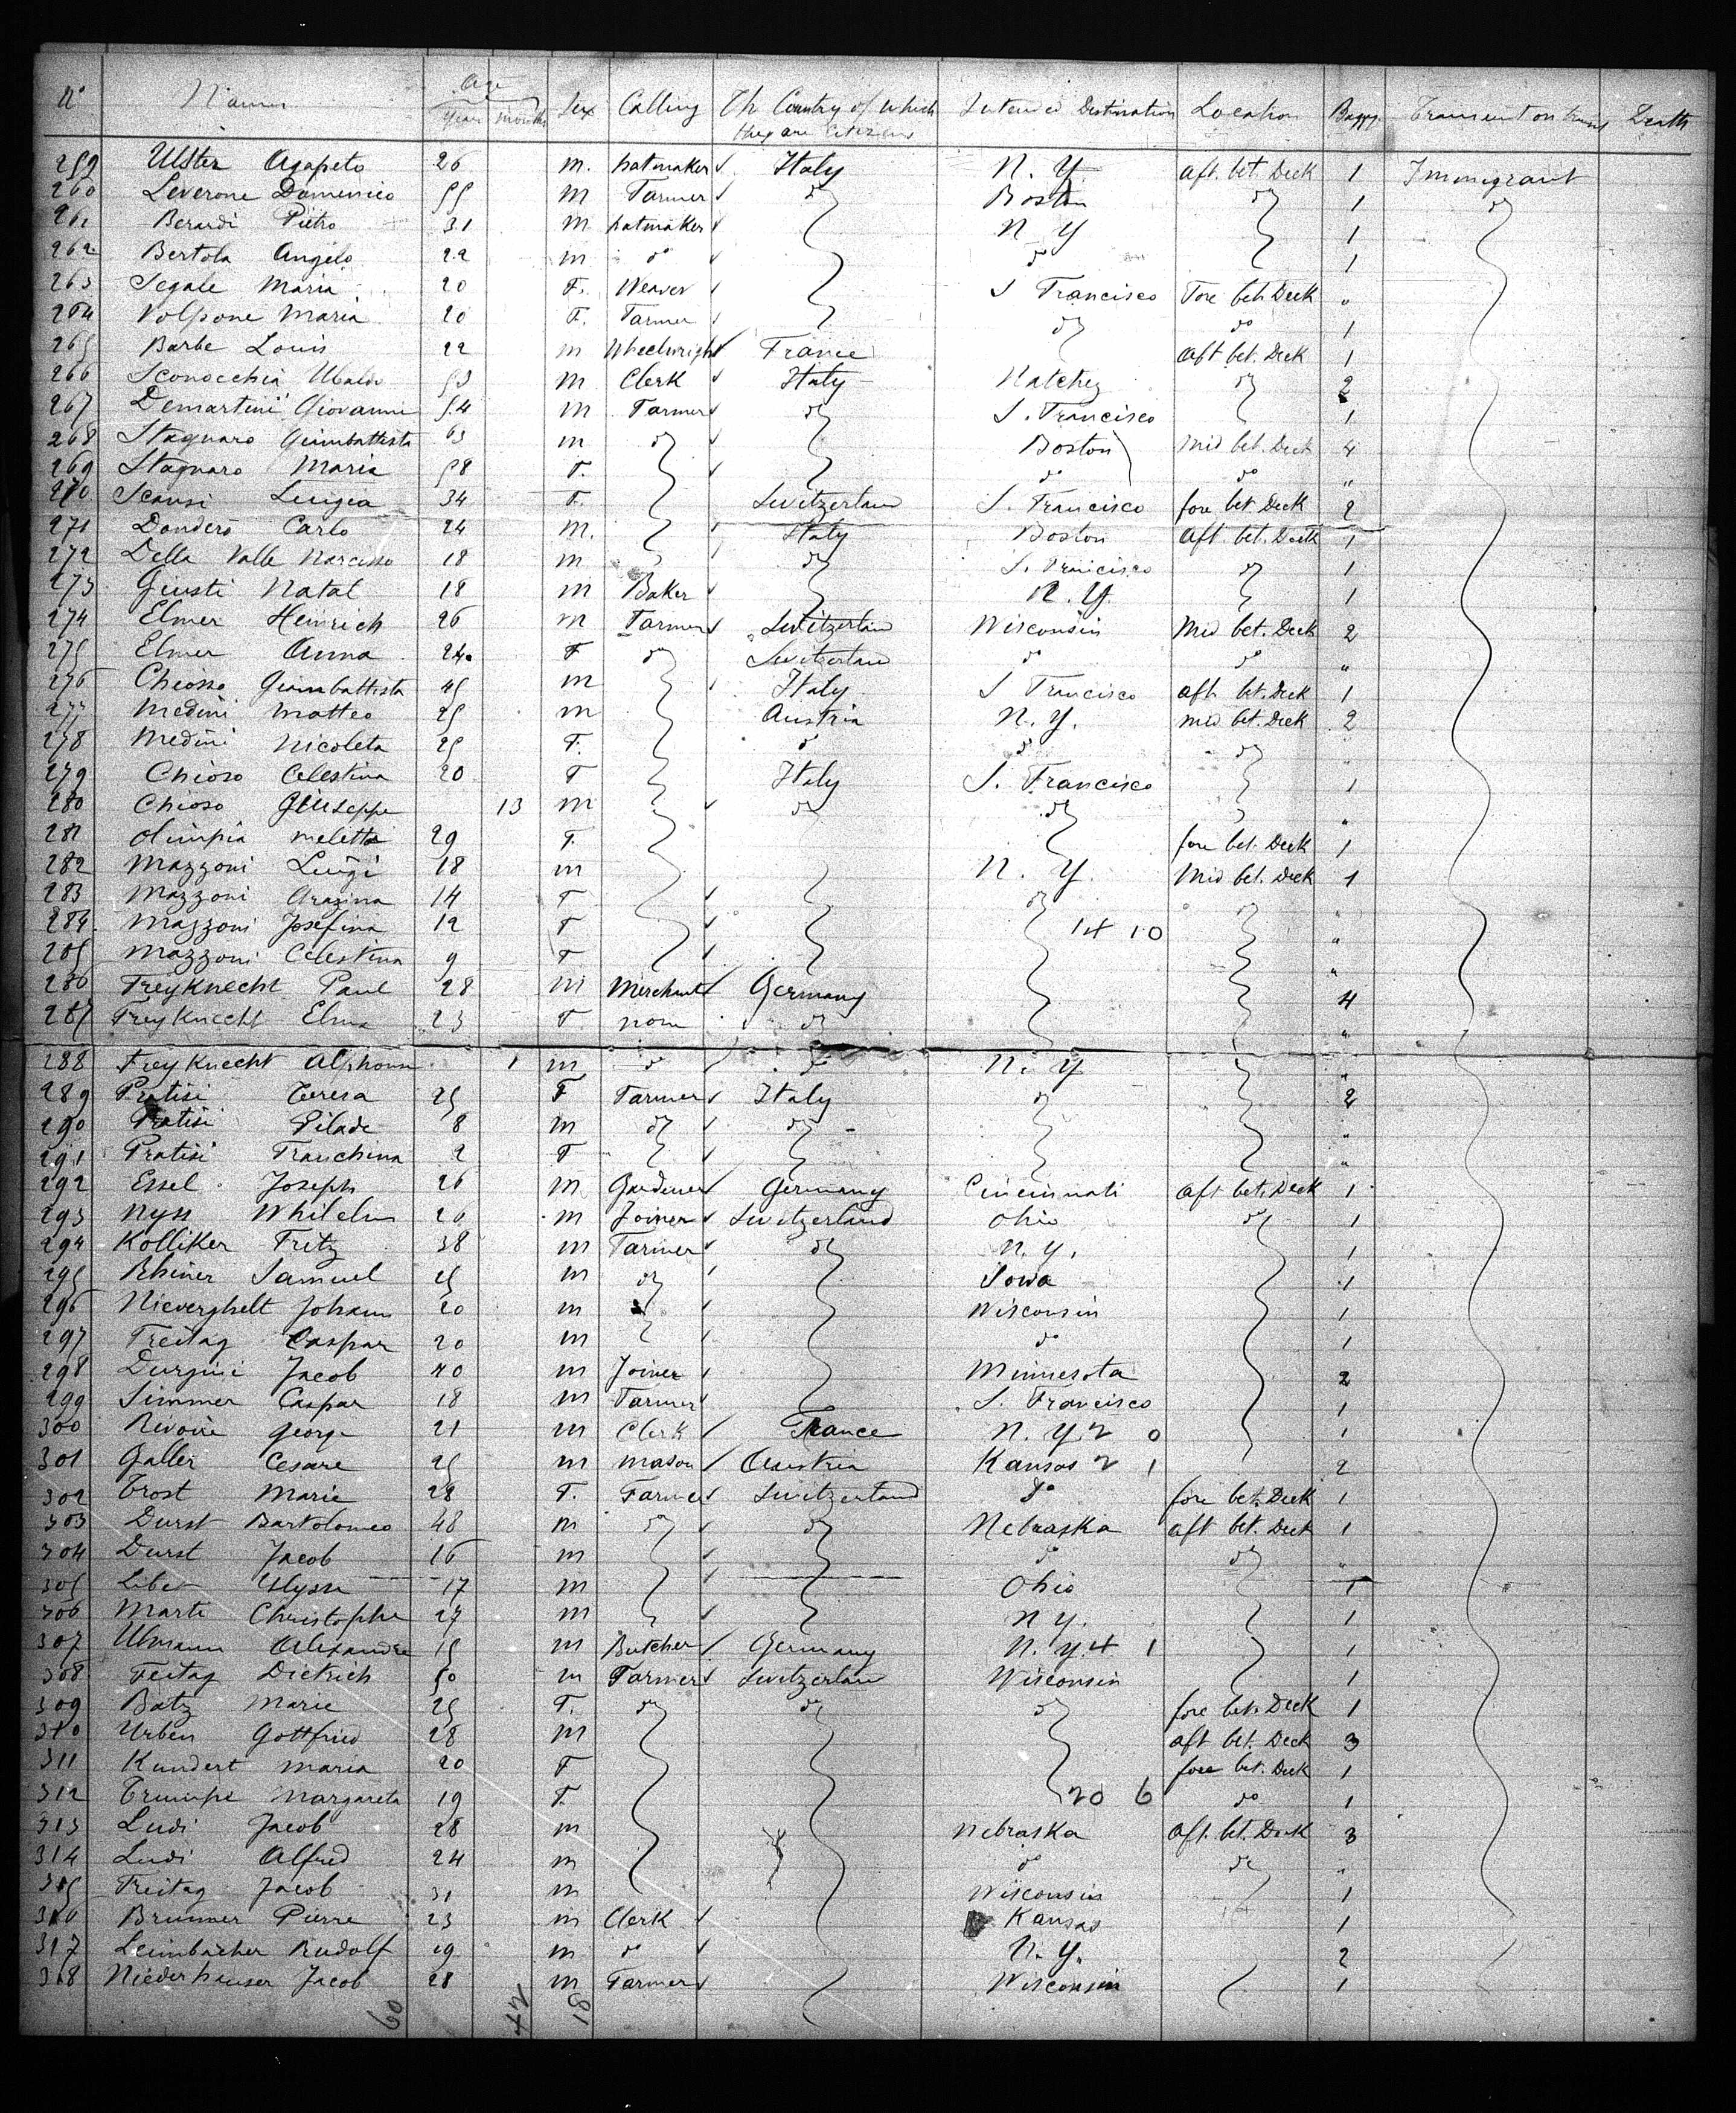 No Names Age Year months Sex Calling Th Country of which they are Citizens Intended Destination Location Bagg. Transient on trans Death
259 Ulster Agapeto 26 m. hatmaker Italy N. Y. aft. bet. Deck 1 Immigrant
260 Leverone Domenico 55 m Farmer do Boston do 1 do
261 Berardi Pietro 31 m hatmaker N Y 1
262 Bertola Angelo 22 m do do 1
263 Segale Maria 20 F. Weaver S Francisco Fore bet. Deck "
264 Volpone Maria 20 F. Farmer do do 1
265 Barbe Louis 22 m Wheelwright France aft bet. Deck 1
266 Sconocchia Ubaldo 53 m Clerk Italy Natchez do 2
267 Demartini Giovanni 54 m Farmer do S. Francisco 1
268 Stagnaro Giambattista 63 m do Boston Mid bet. Deck 4
269 Stagnaro Maria 58 F. do do "
270 Scansi Luigia 34 F. Switzerland S. Francisco fore bet. Deck 2
271 Dondero Carlo 24 m. Italy Boston aft. bet. Deck 1
272 Della Valle Narcisso 18 m do S. Francisco do 1
273 Giusti Natal 18 m Baker N. Y. 1
274 Elmer Heinrich 26 m Farmer Switzerlan Wisconsin Mid bet. Deck 2
275 Elmer Anna 24 F do Switzerlan do do "
276 Chiosso Giambattista 45 m Italy S Francisco aft. bet. Deck 1
277 Medini Matteo 25 m Austria N. Y. mid bet. Deck 2
278 Medini Nicoleta 25 F. do do do "
279 Chioso Celestina 20 F Italy S. Francisco 1
280 Chioso Giuseppe 13 m do do "
281 Olimpia Meletta 29 F. fore bet. Deck 1
282 Mazzoni Luigi 18 m N. Y. Mid bet. Deck 1
283 Mazzoni Grazina 14 F do do "
284. Mazzoni Josefina 12 F 14 10 "
285 Mazzoni Celestina 9 F "
286 Freyknecht Paul 28 m Merchant Germany 4
287 Freyknecht Elma 23 F. none do "
288 Freyknecht Alphonse 1 m do do N. Y "
289 Pratisi Teresa 25 F Farmer Italy do 2
290 Pratisi Pilade 8 m do do "
291 Pratisi Franchina 2 F "
292 Essel Joseph 26 m Gardener Germany Cincinnati aft bet. Deck 1
293 Nyss Whilelm 20 m Joiner Switzerland Ohio do 1
294 Kolliker Fritz 38 m Farmer do N. Y. 1
295 Rhiner Samuel 25 m do Iowa 1
296 Nieverghelt Johann 20 m Wisconsin 1
297 Freitag Caspar 20 m do 1
298 Durgini Jacob 40 m Joiner Minnesota 2
299 Simmer Caspar 18 m Farmer S. Francisco 1
300 Rivoire George 21 m Clerk France N. Y 2 0 1
301 Galler Cesare 25 m mason Austria Kansas 2 1 2
302 Trost Marie 28 F. Farmer Switzerland do fore bet. Deck 1
303 Durst Bartolomeo 48 m do do Nebraska aft bet. Deck 1
304 Durst Jacob 16 m do do "
305 Ulysse 17 m Ohio 1
306 Marti Christophe 27 m N Y. 1
307 Ulmann Alexandre 15 m Butcher Germany N. Y. 4 1 1
308 Feitag Dietrich 50 m Farmer Switzerlan Wisconsin 1
309 Batz Marie 25 F. do do do fore bet. Deck 1
310 Urben Gottfried 28 m aft bet. Deck 3
311 Kundert Maria 20 F fore bet. Deck 1
312 Trumpi Margareta 19 F. 20 6 do 1
313 Ludi Jacob 28 m Nebraska aft. bet. Deck 3
314 Ludi Alfred 24 m do do "
315 Freitag Jacob 31 m Wisconsin 1
316 Brunner Pierre 23 m Clerk Kansas 1
317 Leimbacher Rudolf 19 m do N. Y. 2
318 Niederhauser Jacob 28 m Farmer Wisconsin 1
60 42 18